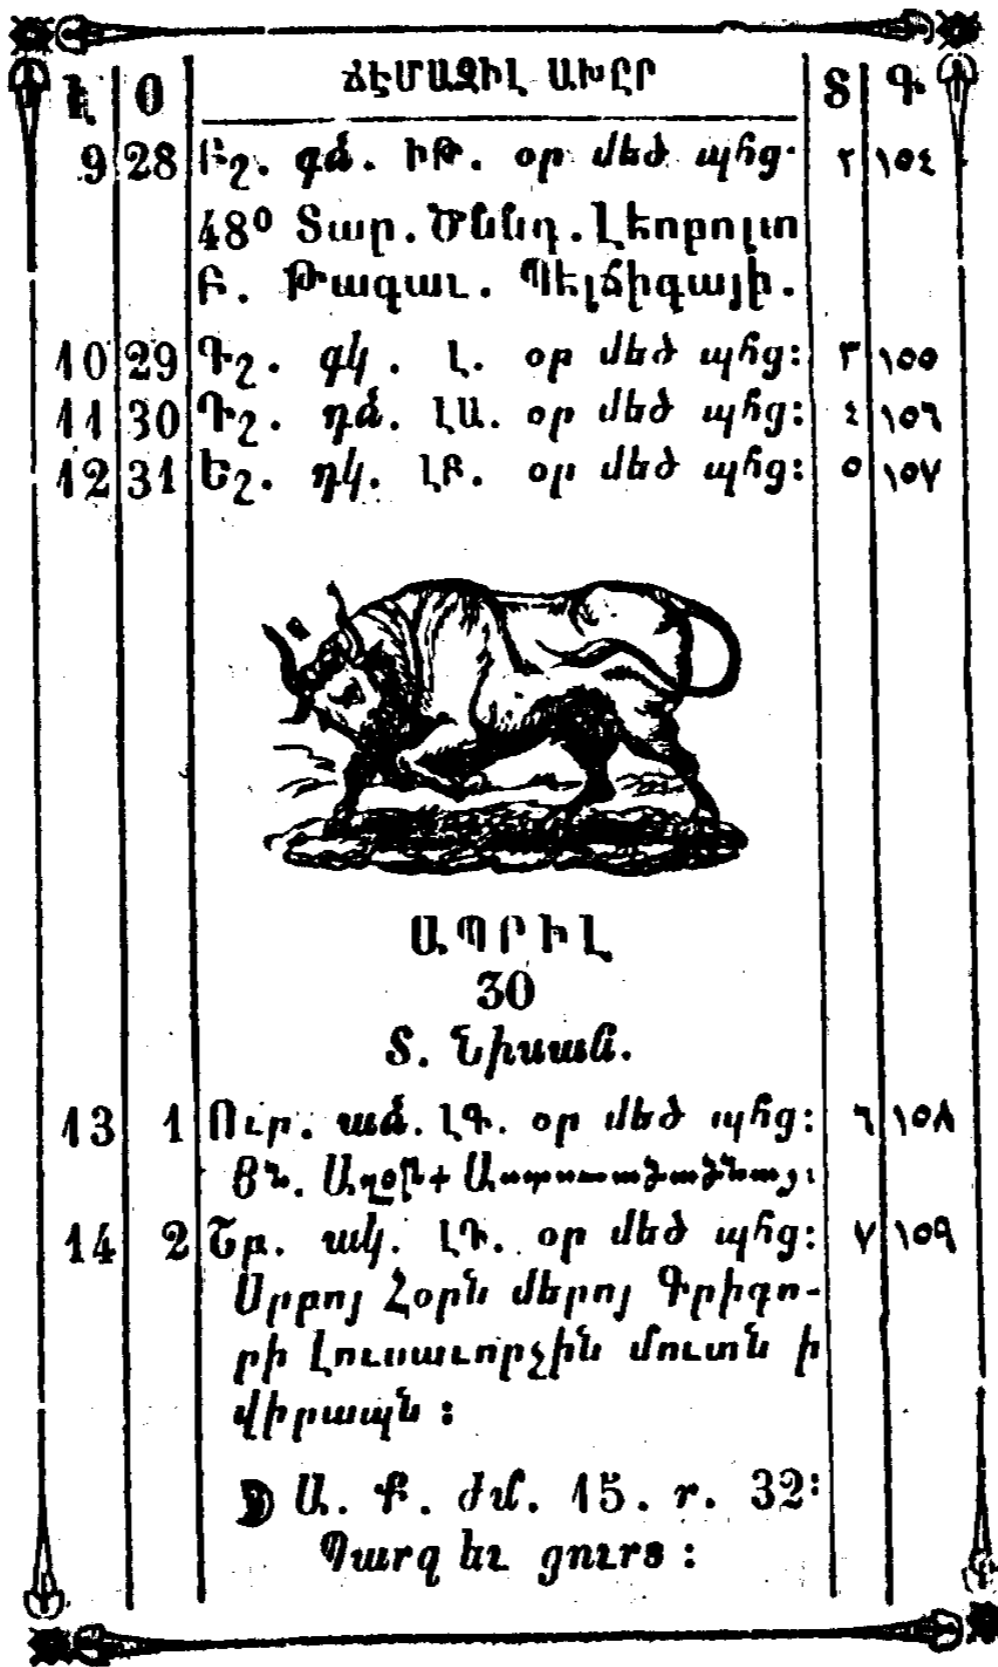 Է Օ ՃԷՄԱԶԻԼ ԱԽԸՐ Տ Գ
9 28 Բշ. գձ. ԻԹ. օր մեծ պհց. ٢ ١٥٤
48⁰ Տար. Ծննդ. Լէոբոլտ
Բ. Թագաւ. Պէլճիգայի.
10 29 Գշ. գկ. Լ. օր մեծ պհց: ٣ ١٥٥
11 30 Դշ. դձ. ԼԱ. օր մեծ պհց: ٤ ١٥٦
12 31 Եշ. դկ. ԼԲ. օր մեծ պհց: ٥ ١٥٧
ԱՊՐԻԼ
30
Տ. Նիսան.
13 1 Ուր. աձ. ԼԳ. օր մեծ պհց: ٦ ١٥٨
Յն. Աղօթք Աստուածածնայ:
14 2 Շբ. ակ. ԼԴ. օր մեծ պհց: ٧ ١٥٩
Սրբոյ Հօրն մերոյ Գրիգո-
րի Լուսաւորչին մուտն ի
վիրապն :
Ա. Ք. ժմ. 15. ր. 32:
Պարզ եւ ցուրտ :